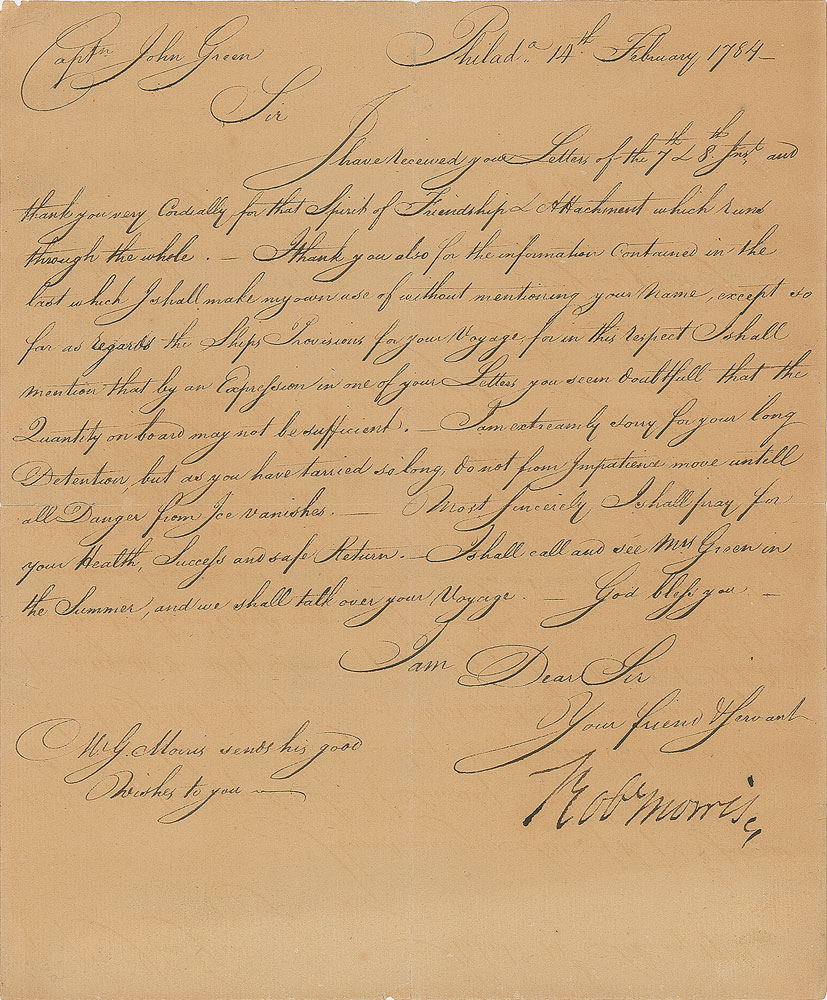 Capt.n John Green Philad.a 14th February 1784—
Sir
I have received your Letters of the 7th & 8th Inst. and
thank you very Cordially for that Spirit of Friendship & Attachment which runs
through the whole. — I thank you also for the information Contained in the
last which I shall make my own use of without mentioning your Name, except so
far as regards the Ships Provisions for your Voyage, for in this respect I shall
mention that by an Expression in one of your Letters you seem doubtfull that the
Quantity on board may not be sufficient. — I am extreamly sorry for your long
Detention, but as you have tarried so long, do not from Impatience move untill
all Danger from Ice vanishes. — Most Sincerely I shall pray for
your Health, Success and safe Return. — I shall call and see Mrs Green in
the Summer, and we shall talk over your Voyage. — God bless you. —
I am Dear Sir
Your friend & Servant
Mr G. Morris sends his good
Wishes to you —
Robt Morris